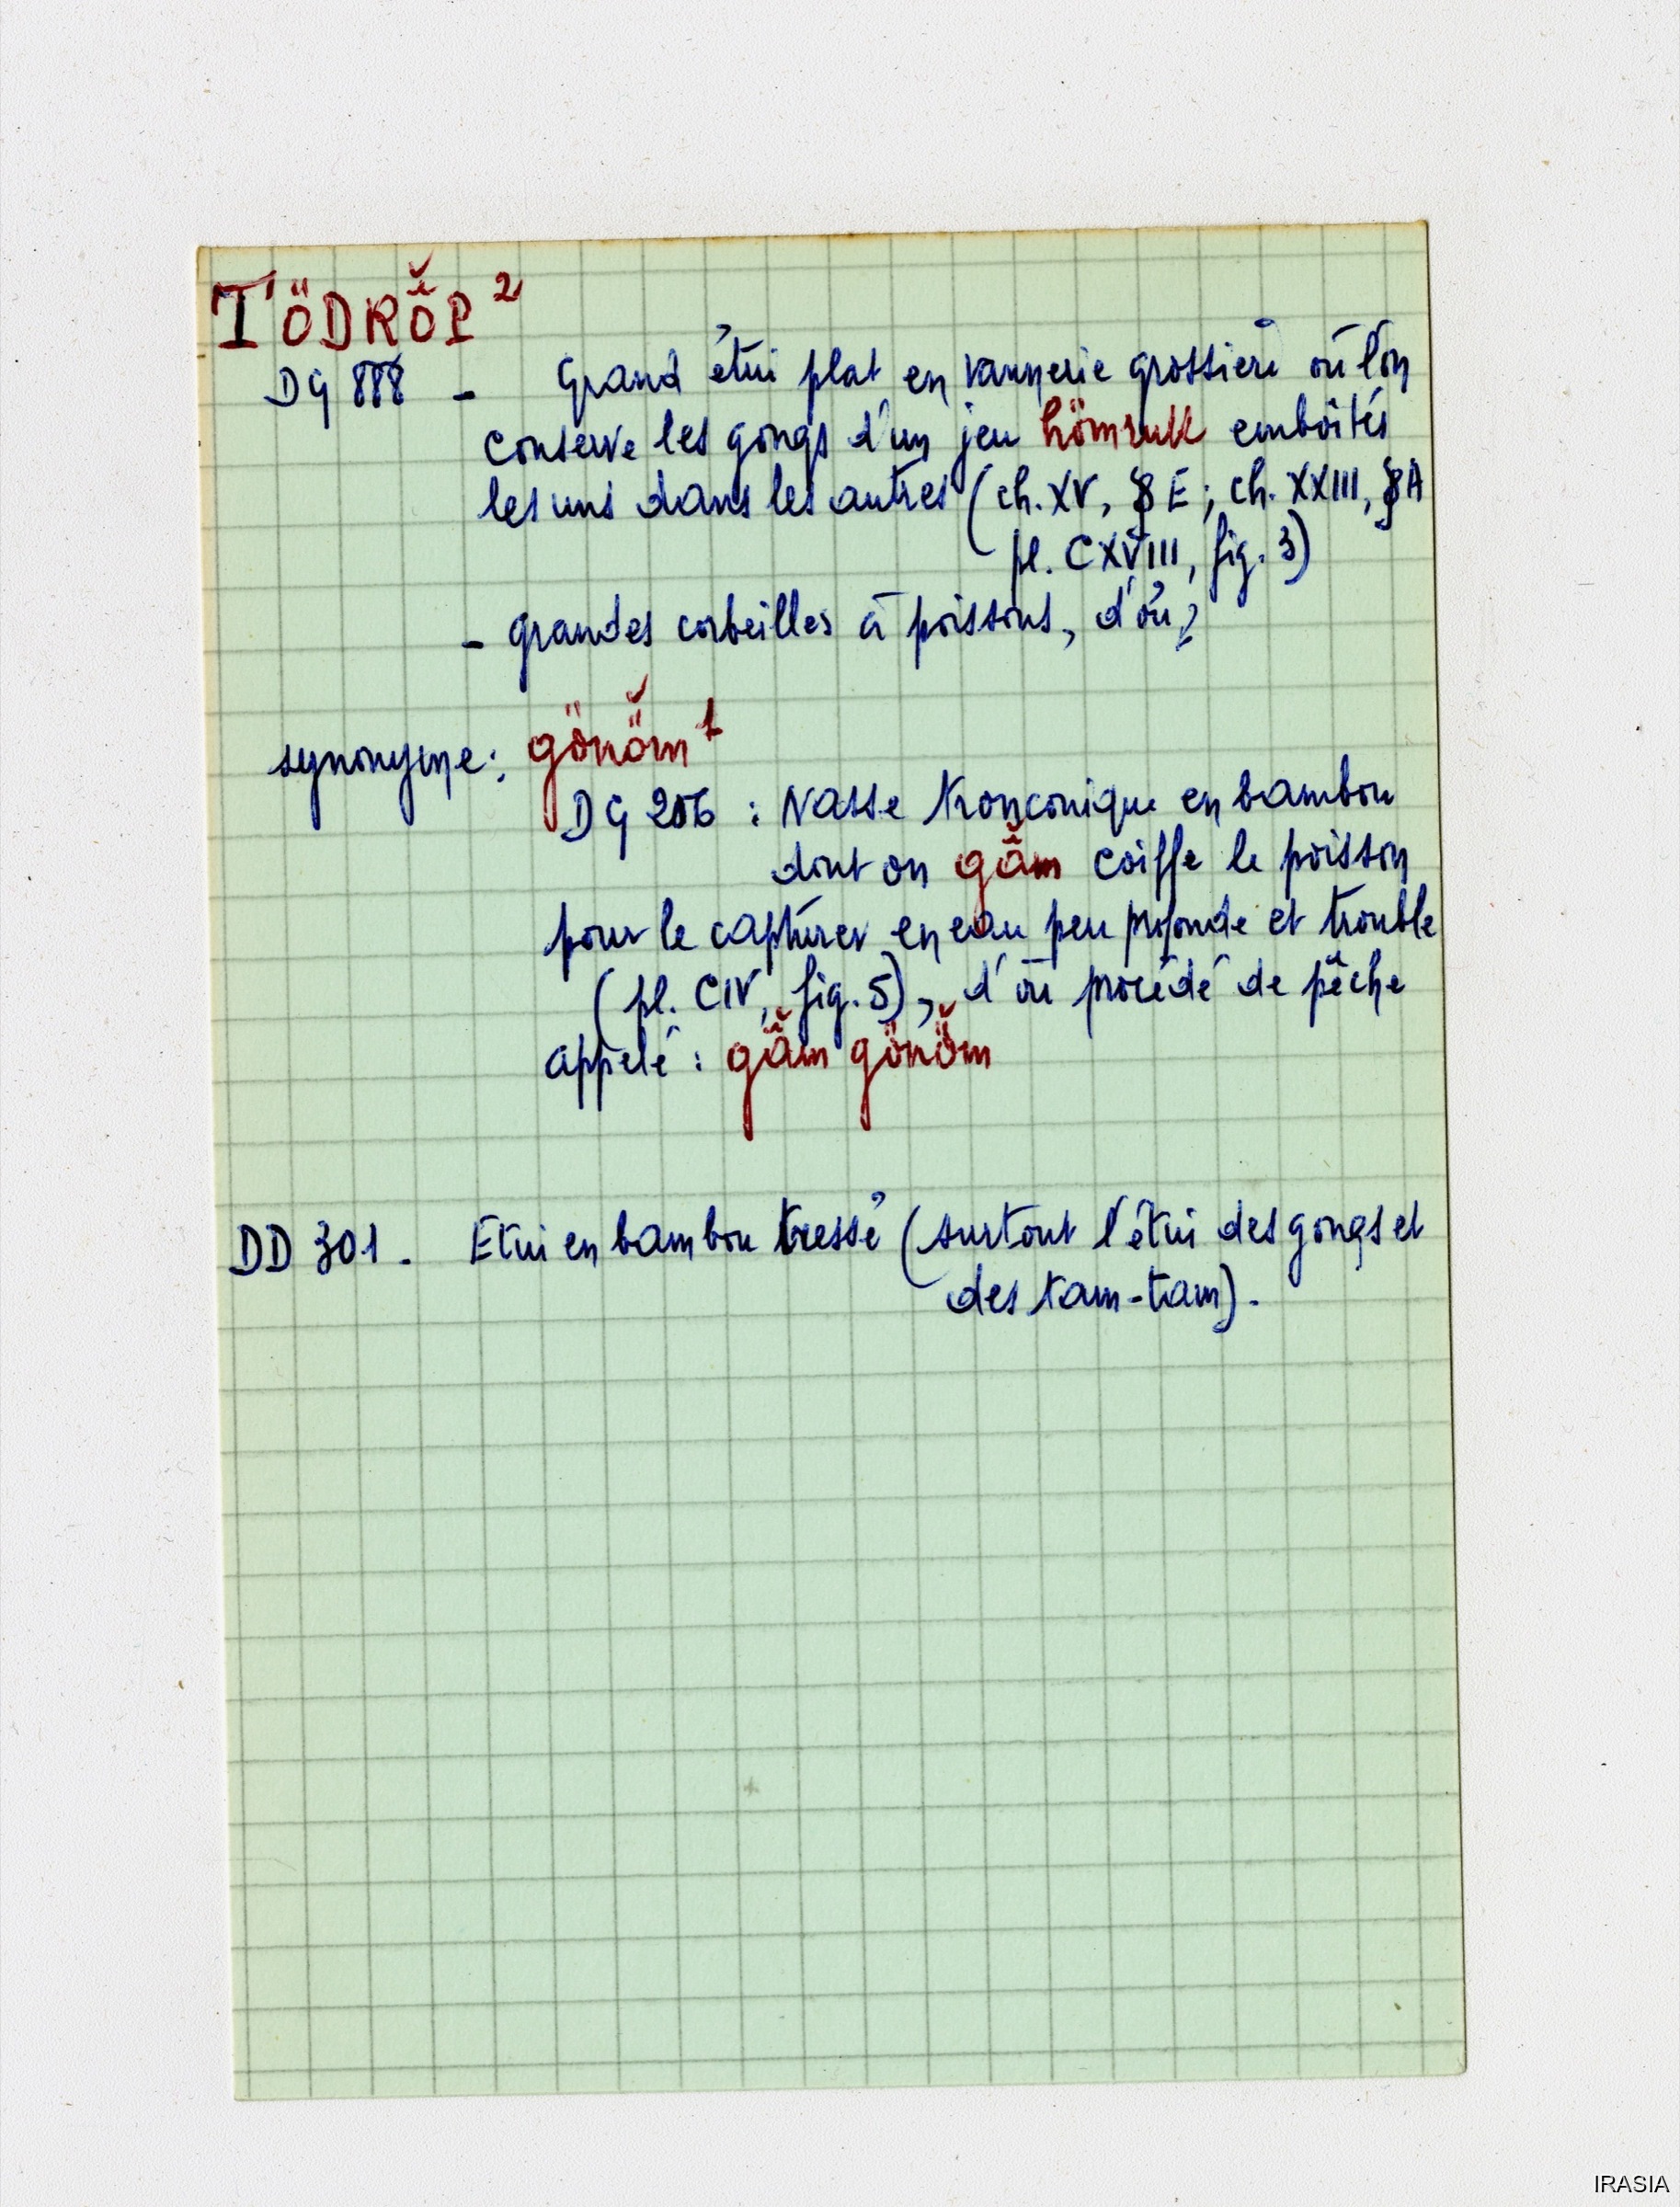 TÖDRÖ̆P ²
DG 888 - Grand étui plat en vannerie grossière où l'on
conserve les gongs d'un jeu hömruk emboîtés
les uns dans les autres (ch. XV, § E ; ch. XXIII, § A
pl. CXVIII, fig. 3)
- grandes corbeilles à poissons, d'où ?
synonyme : gönö̆m ¹
DG 206 : Nasse tronconique en bambou
dont on gâ̆m coiffe le poisson
pour le capturer en eau peu profonde et trouble
(pl. CIV, fig. 5), d'où procédé de pêche
appelé : gâ̆m gönö̆m
DD 301. Etui en bambou tressé (surtout l'étui des gongs et
des tam-tam).
IRASIA